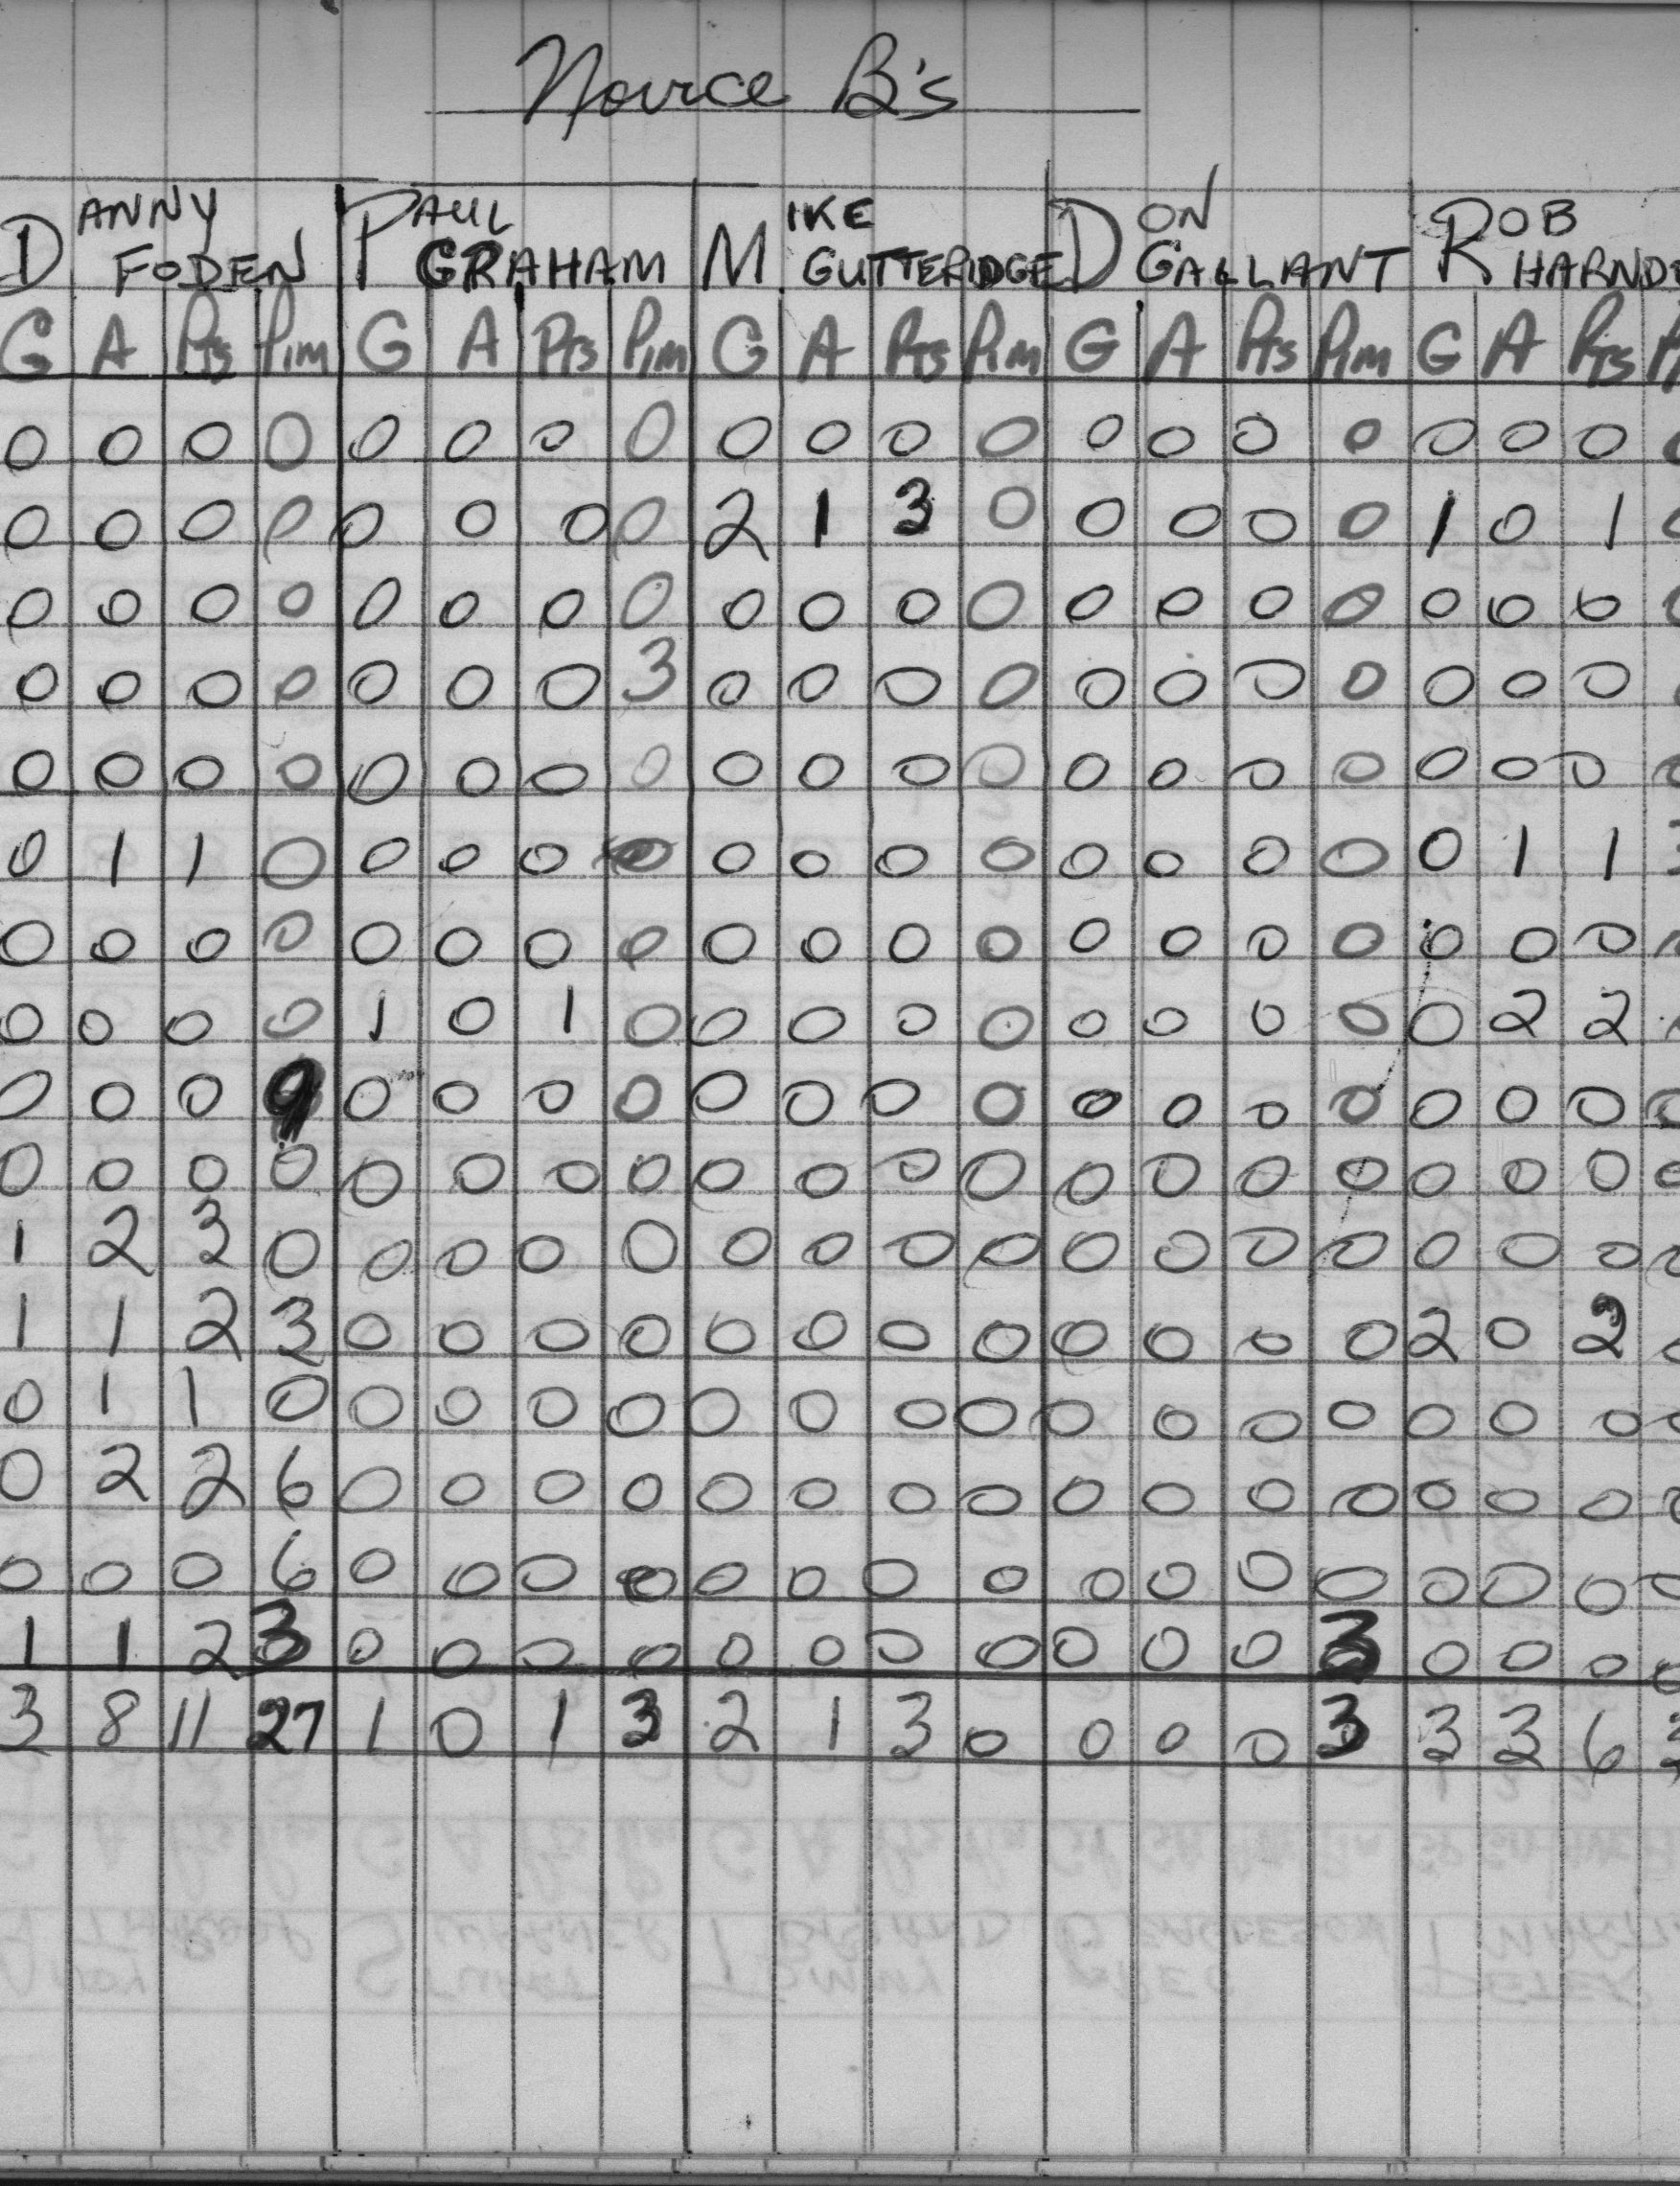 Novice B's
DANNY FODEN PAUL GRAHAM MIKE GUTTERIDGE DON GALLANT ROB
G A Pts Pim G A Pts Pim G A Pts Pim G A Pts Pim G A Pts
0 0 0 0 0 0 0 0 0 0 0 0 0 0 0 0 0 0 0
0 0 0 0 0 0 0 0 2 1 3 0 0 0 0 0 1 0 1
0 0 0 0 0 0 0 0 0 0 0 0 0 0 0 0 0 0 0
0 0 0 0 0 0 0 3 0 0 0 0 0 0 0 0 0 0 0
0 0 0 0 0 0 0 0 0 0 0 0 0 0 0 0 0 0 0
0 1 1 0 0 0 0 0 0 0 0 0 0 0 0 0 0 1 1
0 0 0 0 0 0 0 0 0 0 0 0 0 0 0 0 0 0 0
0 0 0 0 1 0 1 0 0 0 0 0 0 0 0 0 0 2 2
0 0 0 9 0 0 0 0 0 0 0 0 0 0 0 0 0 0 0
0 0 0 0 0 0 0 0 0 0 0 0 0 0 0 0 0 0 0
1 2 3 0 0 0 0 0 0 0 0 0 0 0 0 0 0 0 0
1 1 2 3 0 0 0 0 0 0 0 0 0 0 0 0 2 0 2
0 1 1 0 0 0 0 0 0 0 0 0 0 0 0 0 0 0 0
0 2 2 6 0 0 0 0 0 0 0 0 0 0 0 0 0 0 0
0 0 0 6 0 0 0 0 0 0 0 0 0 0 0 0 0 0 0
1 1 2 3 0 0 0 0 0 0 0 0 0 0 0 3 0 0 0
3 8 11 27 1 0 1 3 2 1 3 0 0 0 0 3 3 3 6